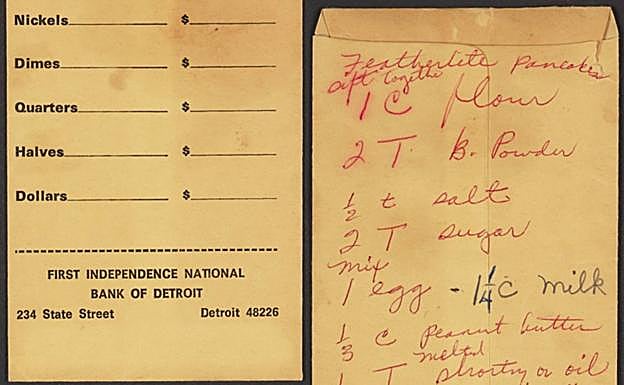 Nickels $
Dimes $
Quarters $
Halves $
Dollars $
FIRST INDEPENDENCE NATIONAL
BANK OF DETROIT
234 State Street Detroit 48226
Featherlite Pancakes
Sift together
1 C flour
2 T B. Powder
1/2 t salt
2 T sugar
mix
1 egg - 1 1/4 C milk
1/3 C peanut butter
melted
1 T shortng or oil